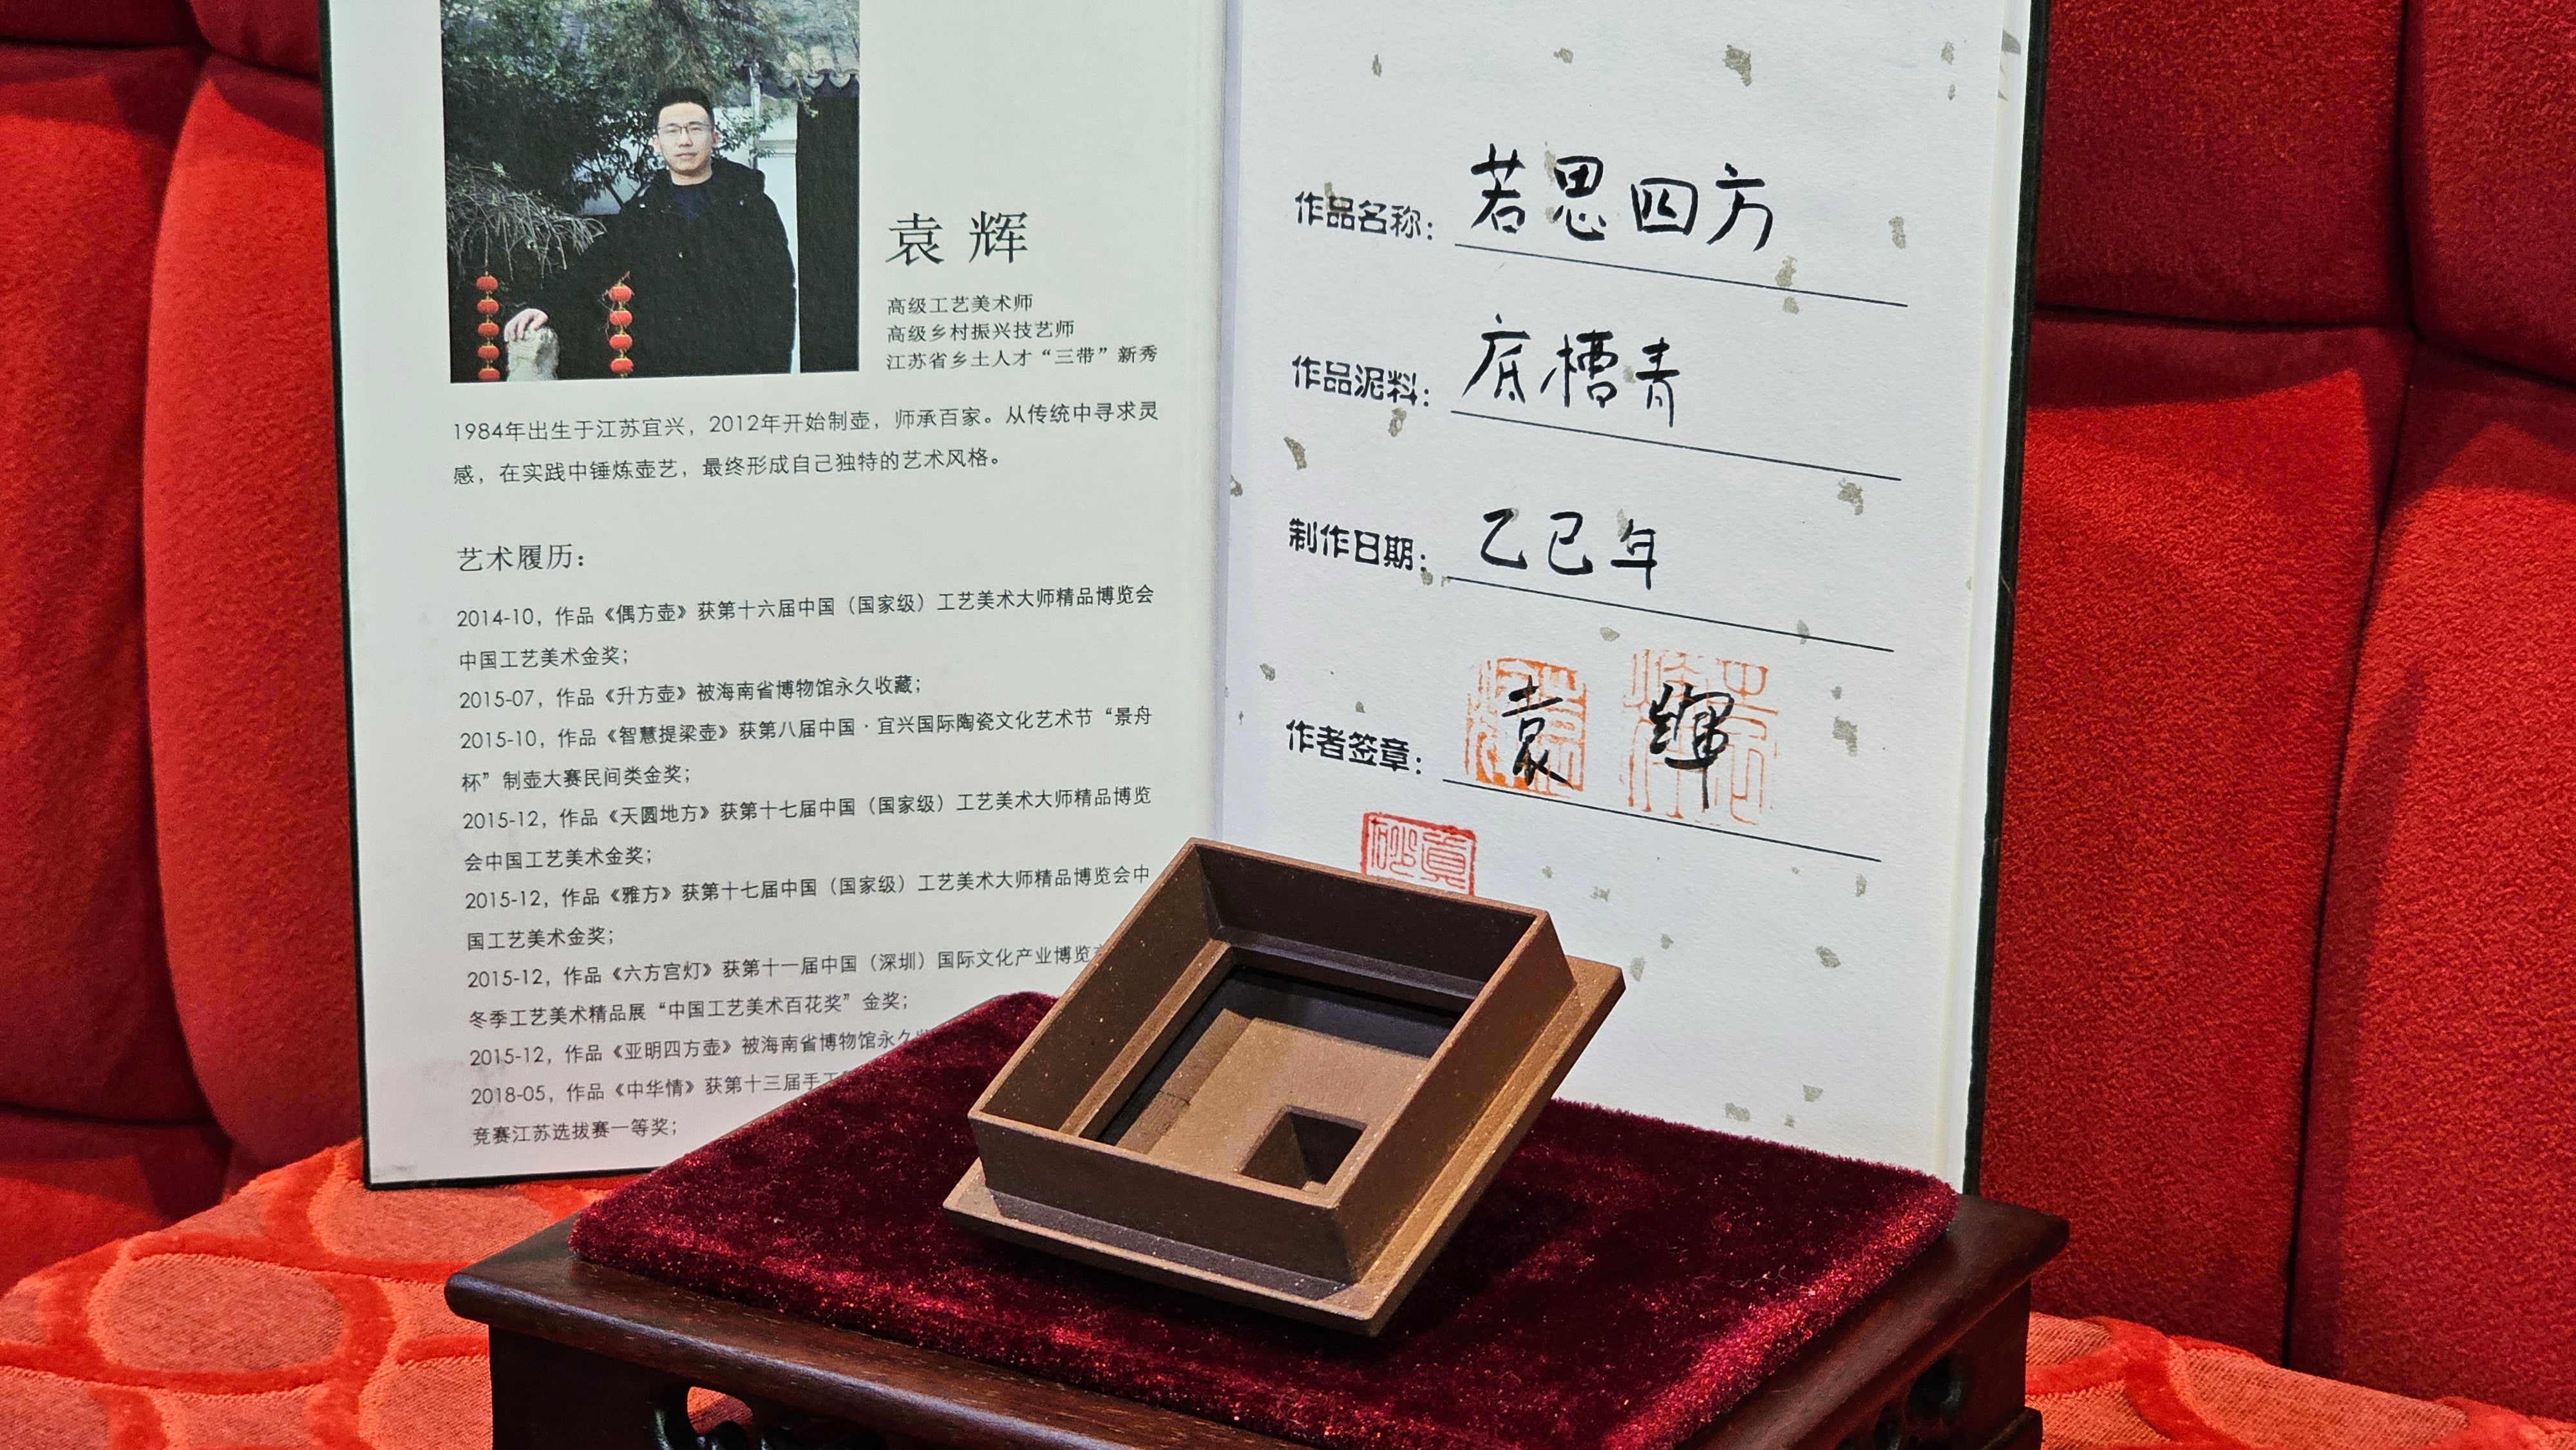 袁辉
高级工艺美术师
高级乡村振兴技艺师
江苏省乡土人才“三带”新秀
1984年出生于江苏宜兴，2012年开始制壶，师承百家。从传统中寻求灵
感，在实践中锤炼壶艺，最终形成自己独特的艺术风格。
艺术履历：
2014-10，作品《偶方壶》获第十六届中国（国家级）工艺美术大师精品博览会
中国工艺美术金奖；
2015-07，作品《升方壶》被海南省博物馆永久收藏；
2015-10，作品《智慧提梁壶》获第八届中国·宜兴国际陶瓷文化艺术节“景舟
杯”制壶大赛民间类金奖；
2015-12，作品《天圆地方》获第十七届中国（国家级）工艺美术大师精品博览
会中国工艺美术金奖；
2015-12，作品《雅方》获第十七届中国（国家级）工艺美术大师精品博览会中
国工艺美术金奖；
2015-12，作品《六方宫灯》获第十一届中国（深圳）国际文化产业博览
冬季工艺美术精品展“中国工艺美术百花奖”金奖；
2015-12，作品《亚明四方壶》被海南省博物馆永久
2018-05，作品《中华情》获第十三届手工
竞赛江苏选拔赛一等奖；
作品名称：若思四方
作品泥料：底槽青
制作日期：乙巳年
作者签章：袁輝